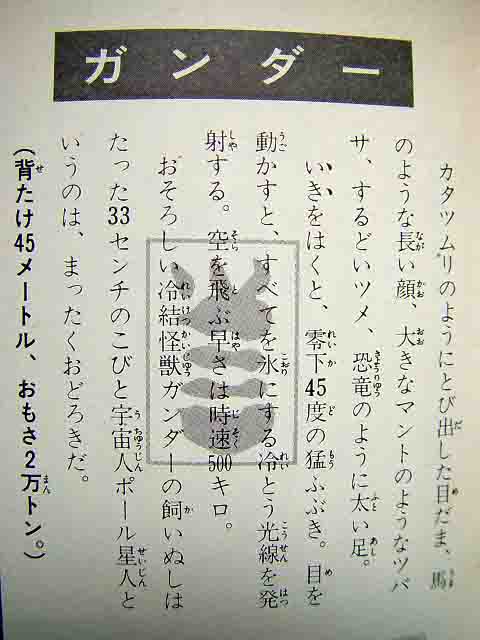 ガンダー
カタツムリのようにとび出した目だま、馬
のような長い顔、大きなマントのようなツバ
サ、するどいツメ、恐竜のように太い足。
いきをはくと、零下45度の猛ふぶき。目を
動かすと、すべてを氷にする冷とう光線を発
射する。空を飛ぶ早さは時速500キロ。
おそろしい冷結怪獣ガンダーの飼いぬしは
たった33センチのこびと宇宙人ポール星人と
いうのは、まったくおどろきだ。
(背たけ45メートル、おもさ2万トン。)